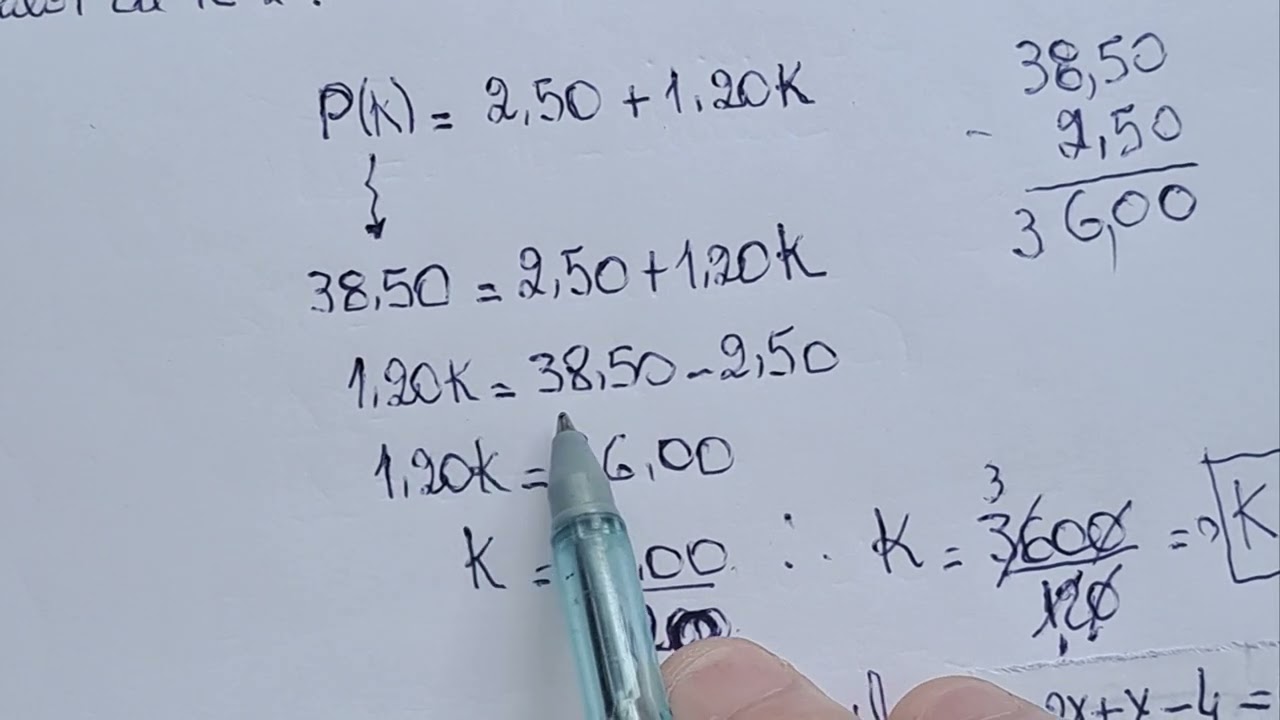 P(k) = 2,50 + 1,20K
38,50 = 2,50 + 1,20K
1,20K = 38,50 - 2,50
1,20K = 6,00
K = ,00 ∴ K = 3600/120 3 = K
38,50
- 2,50
36,00
2x + x - 4 =